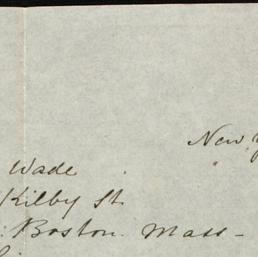 New
Wade
Kilby St.
Boston. Mass-